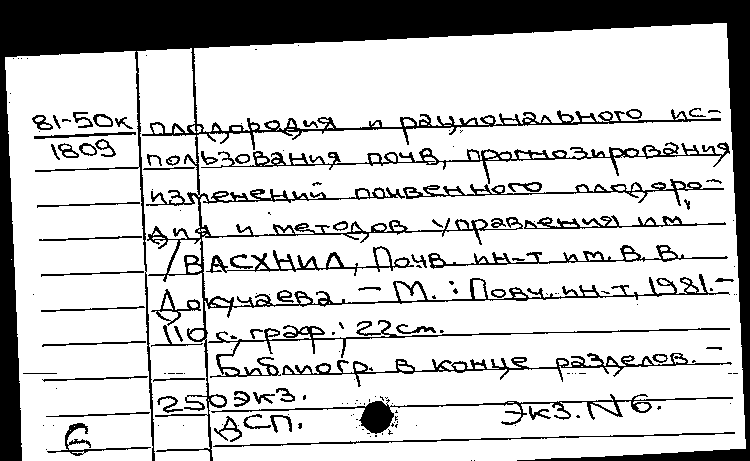 81-50к плодородия и рационального ис-
1809 пользования почв, прогнозирования
изменений почвенного плодоро-
дия и методов управления им
/ ВАСХНИЛ, Почв. ин-т им. В. В.
Докучаева. – М. : Почв. ин-т, 1981. –
110 с., граф.; 22 см.
Библиогр. в конце разделов. –
250 экз.
ДСП. Экз. N 6.
6